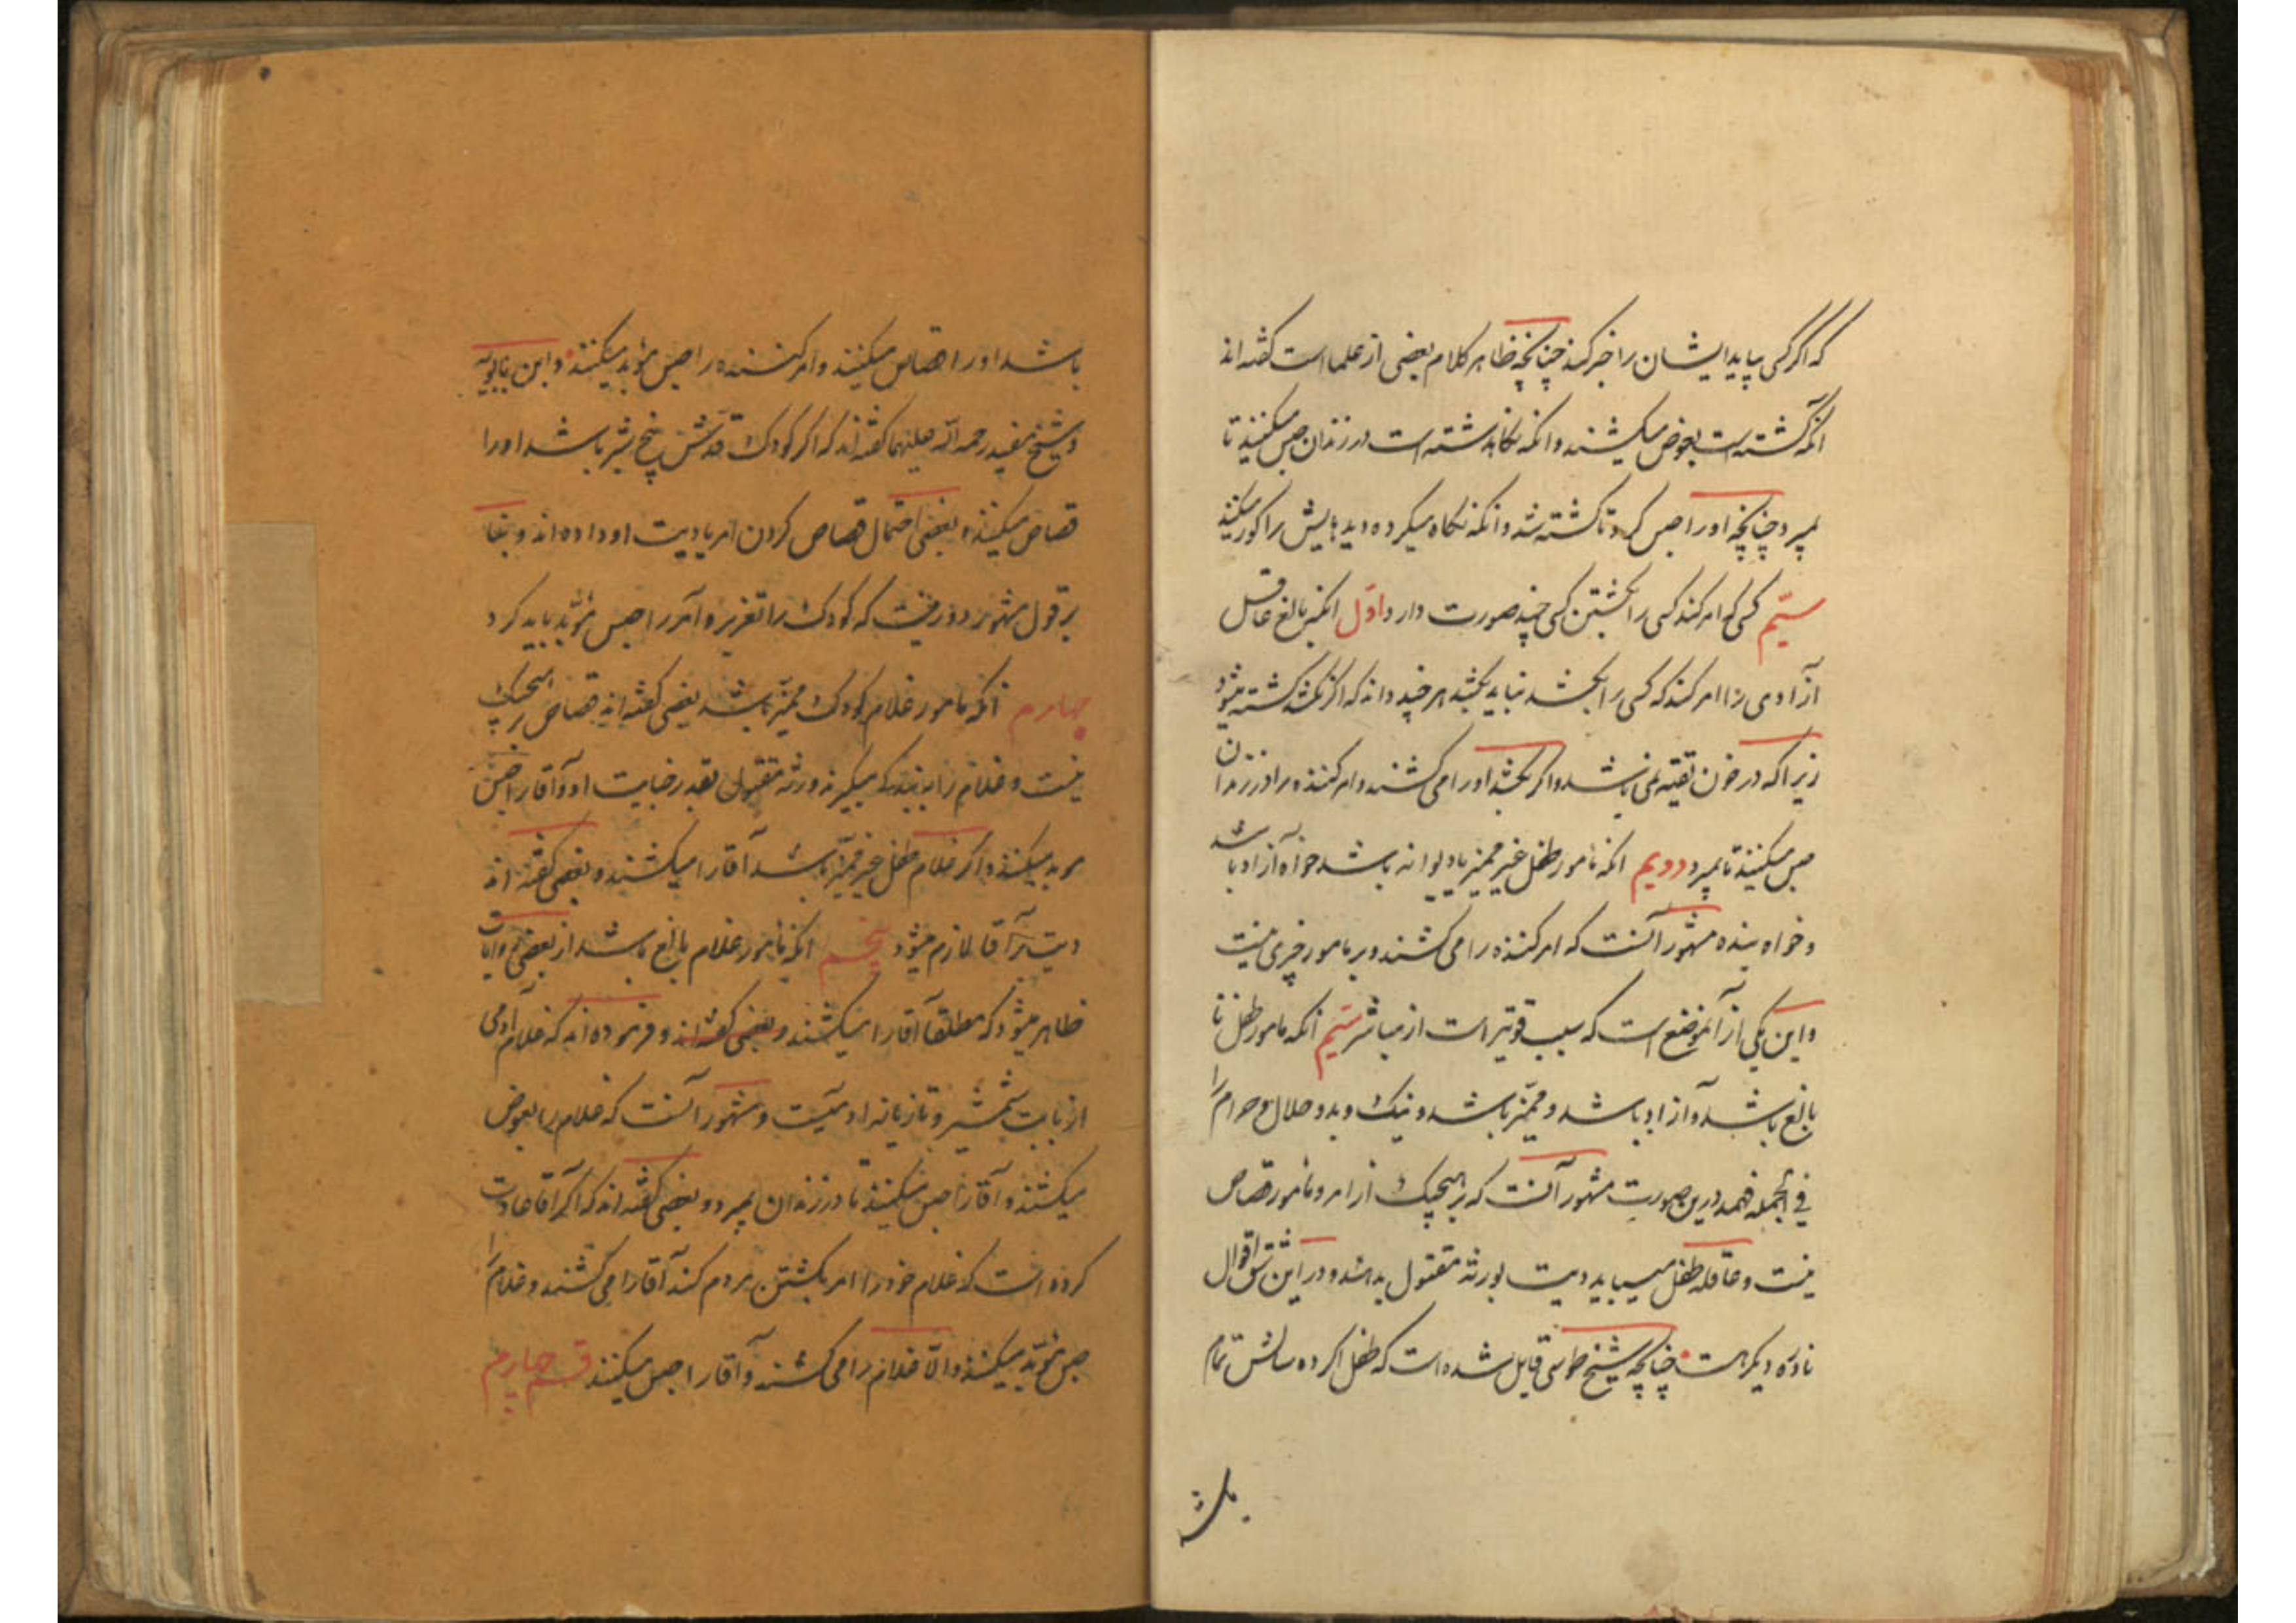 که اگر کسی بیاید ایشان را خبر کند چنانچه ظاهر کلام بعضی از علما است گفته اند
انکه کشته است بعوض میکشند و انکه نکاهداشته است در زندان حبس میکنند تا
بمیرد چنانچه او را حبس کرد تا کشته شد و انکه نکاه میکرده دیدهایش را کور میکنند
سیّم کسی که امر کند کسی را بکشتن کسی چند صورت دارد اوّل انکه بالغ عاقل
آزادی را امر کند که کسی را بکشد نباید بکشد هر چند داند که اگر نکشد کشته میشود
زیرا که در خون تقیّه نمی باشد و اگر بکشد او را می کشند و امر کننده را در زندان
حبس میکنند تا بمیرد دویم انکه مامور طفل غیر ممیز یا دیوانه باشد خواه آزاد باشد
و خواه بنده مشهور آنست که امر کننده را می کشند و بر مامور چیزی نیست
و این یکی از آنموضع است که سبب قویتر است از مباشر سیّم انکه مامور طفل نا
بالغ باشد و آزاد باشد و ممیّز باشد و نیک و بد و حلال و حرام را
فی الجمله فهمد درین صورت مشهور آنست که بر هیچیک از امر و مامور قصاص
نیست و عاقله طفل میباید دیت بورثه مقتول بدهند و در این شق اقوال
نادره دیکر هست چنانچه شیخ طوسی قایل شده است که طفل اگر ده سالش تمام
باشد
باشد او را قصاص میکنند و امر کننده را حبس مؤبد میکنند و ابن بابویه
و شیخ مفید رحمه الله علیهما گفته اند که اگر کودک قدش پنج شبر باشد او را
قصاص میکنند و بعضی احتمال قصاص کردن امر یا دیت او داده اند و بنا
بر قول مشهور دور نیست که کودک را تعزیر و آمر را حبس مؤبّد باید کرد
چهارم انکه مامور غلام کودک ممیّز باشد بعضی گفته اند قصاص بر هیچیک
نیست و غلام را به بندکی میگیرند ورثه مقتول بقدر جنایت او و آقا را حبس
مؤبد میکنند و اگر غلام طفل غیر ممیّز باشد آقا را میکشند و بعضی گفته اند
دیت بر آقا لازم میشود پنجم انکه مامور غلام بالغ باشد از بعضی روایات
ظاهر میشود که مطلقا آقا را میکشند و بعضی گفته اند و فرموده اند که غلام آدمی
از بابت شمشیر و تازیانه اوست و مشهور آنست که غلام را بعوض
میکشند و آقا را حبس میکنند تا در زندان بمیرد و بعضی گفته اند که اگر آقا عادت
کرده است که غلام خود را امر بکشتن مردم کند آقا را می کشند و غلام را
حبس مؤبّد میکنند و الّا غلام را می کشند و آقا را حبس میکنند قسم چهارم